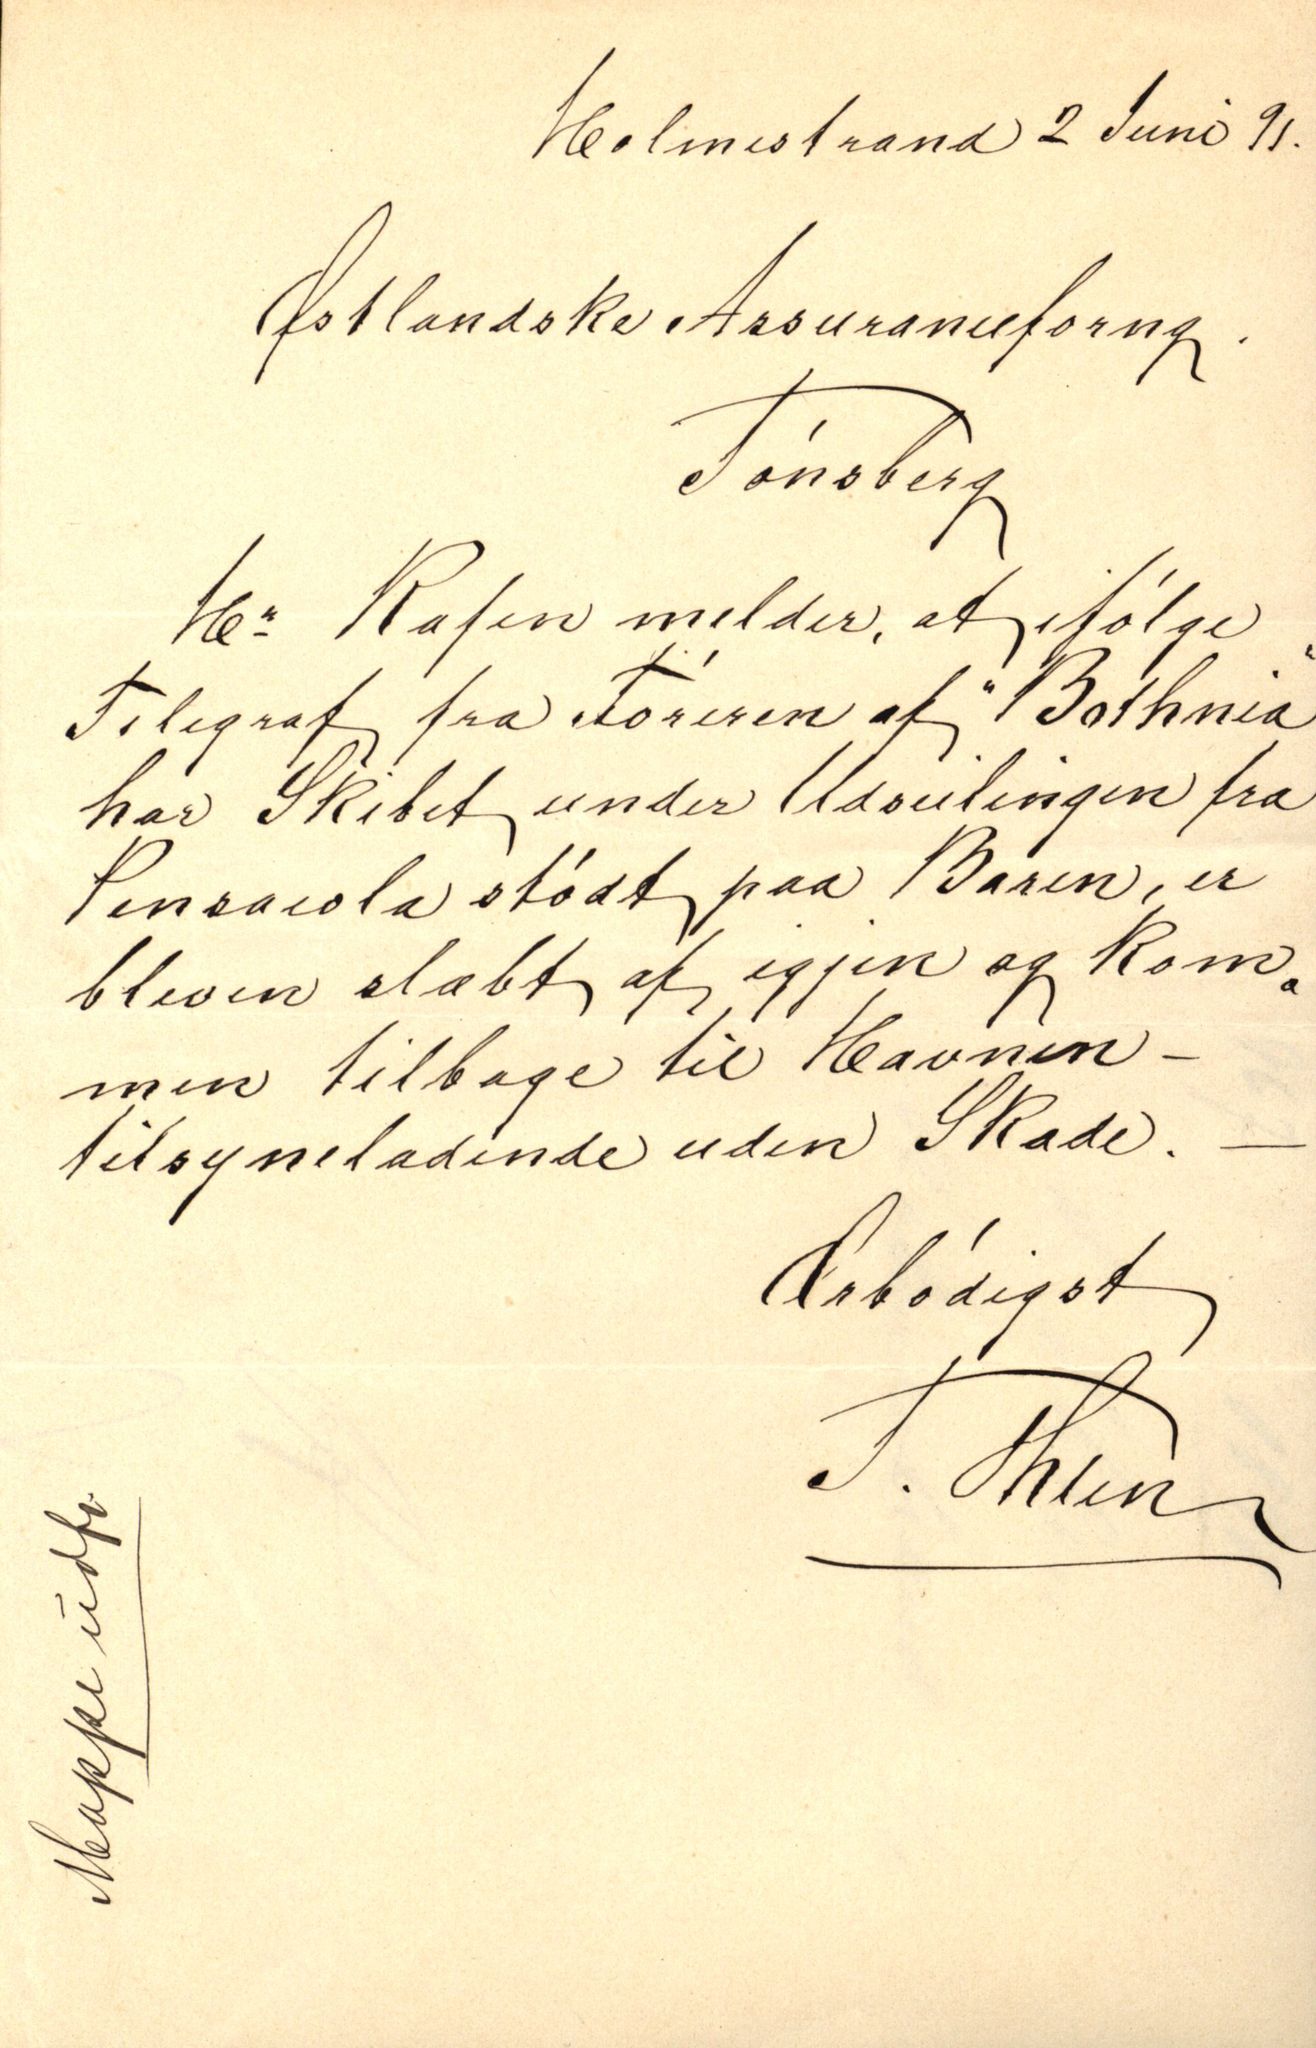 Holmestrand 2 Juni 91.
Østlandske Assuranceforng.
Tónsberg
Hr Rafen melder, at ifólge
Telegraf fra Fóreren af "Bothnia"
har Skibet under Udseilingen fra
Pensacola stódt paa Baren, er
bleven slæbt af igjen og kom-
men tilbage til Havnen -
tilsyneladende uden Skade. —
Ærbódigst
T. Thlen
Mappe udfr